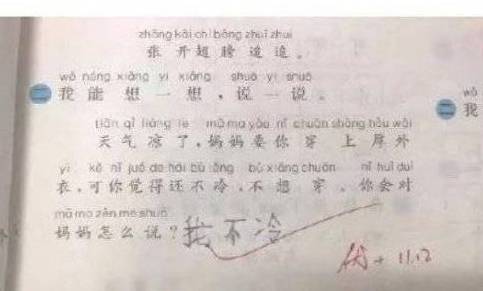 zhāng kāi chì bǎng zhuī zhuī
张 开 翅 膀 追 追 。
wǒ néng xiǎng yi xiǎng shuō yi shuō
二 我 能 想 一 想 ，说 一 说 。
tiān qì liáng le mā ma yào nǐ chuān shàng hòu wài
天 气 凉 了 ，妈 妈 要 你 穿 上 厚 外
yī kě nǐ jué de hái bù lěng bù xiǎng chuān nǐ huì duì
衣 ，可 你 觉 得 还 不 冷 ，不 想 穿 。你 会 对
mā ma zěn me shuō
妈 妈 怎 么 说 ？我 不 冷
优+ 11.12
wǒ
二 我